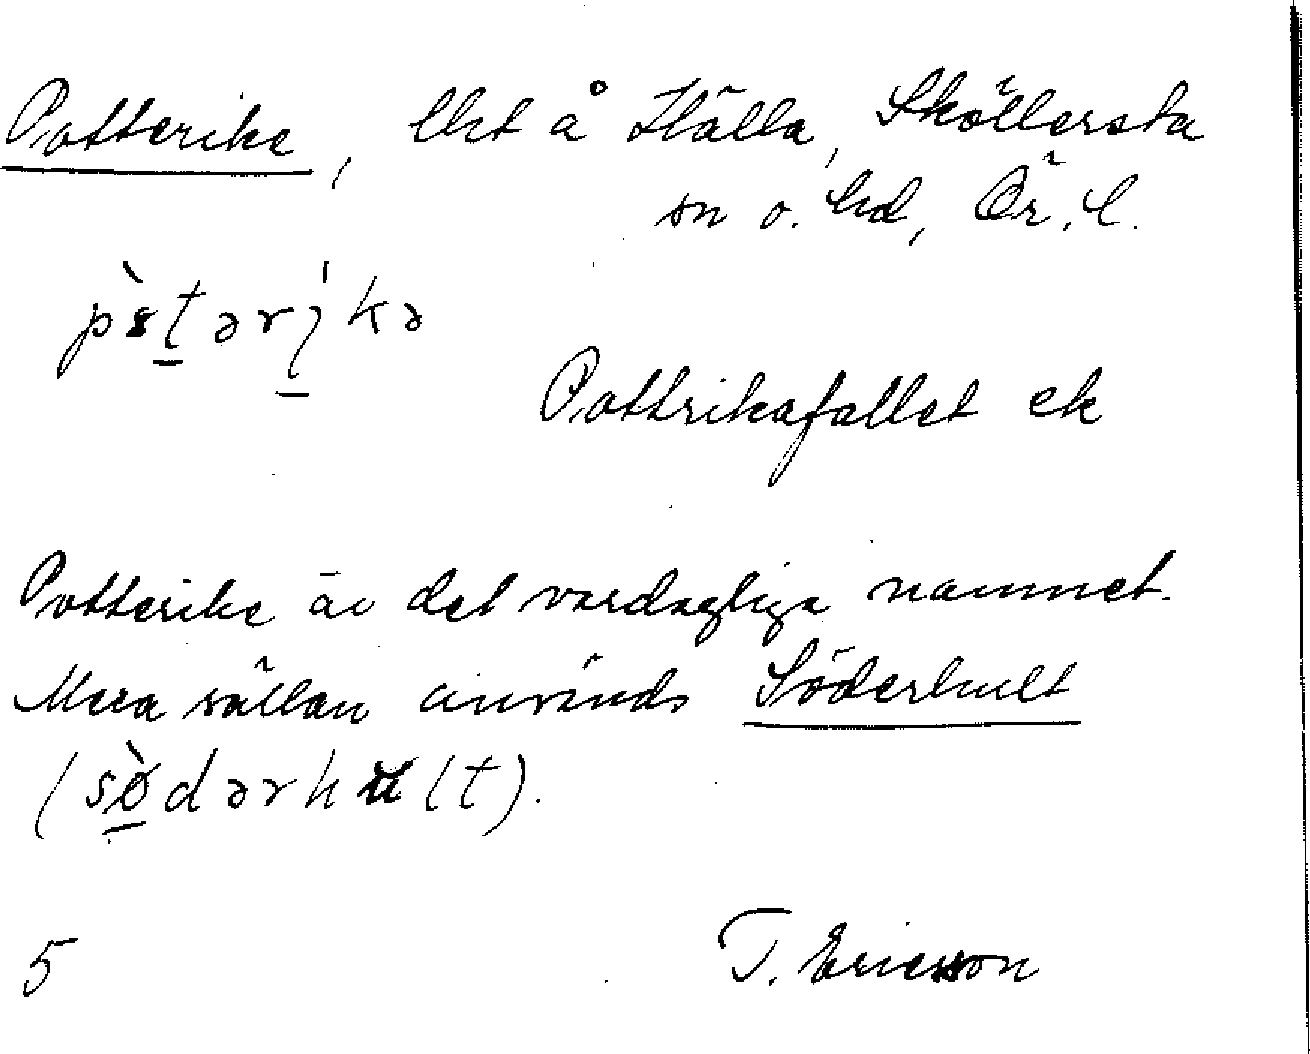 Potterike, lht å Hälla, Sköllersta
sn o. hd, Ör. l.
pètəri̱kə
Pottrikafallet ek
Potterike är det vardagliga namnet.
Mera sällan används Söderhult
(sø̱̀dərhult).
5
T. Ericsson